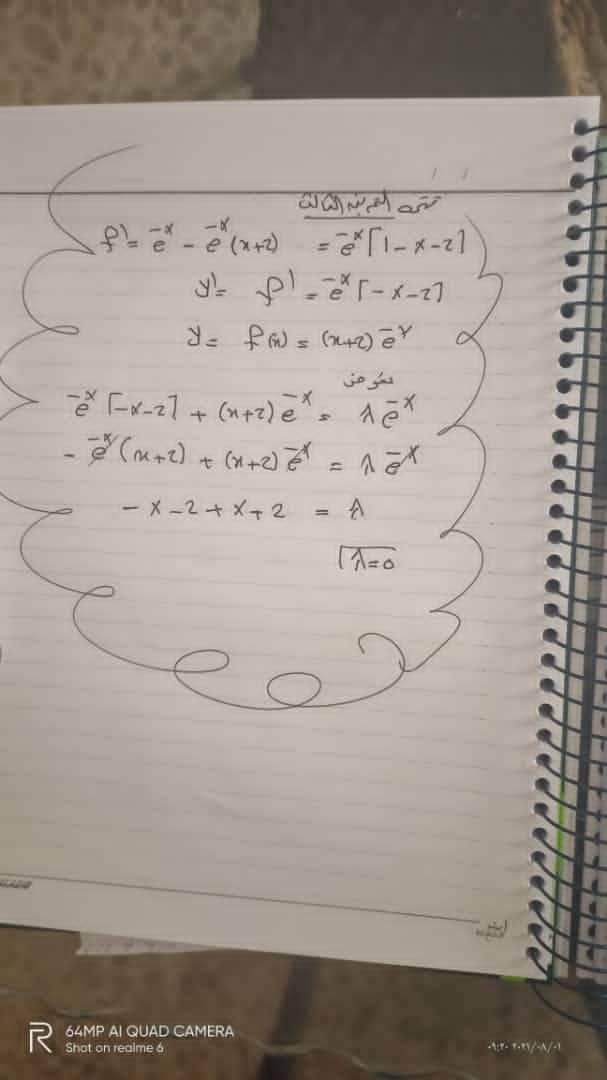 تتمة التمرين الثالث
f' = e^-x - e^-x (x+2) = e^-x [1-x-2]
y' = f' = e^-x [-x-2]
y = f(x) = (x+2) e^-x
نعوض
e^-x [-x-2] + (x+2) e^-x = λ e^-x
- e^-x (x+2) + (x+2) e^-x = λ e^-x
- x - 2 + x + 2 = λ
λ = 0
64MP AI QUAD CAMERA
Shot on realme 6
٠٩:٢٠ ٢٠٢١/٠٨/٠١